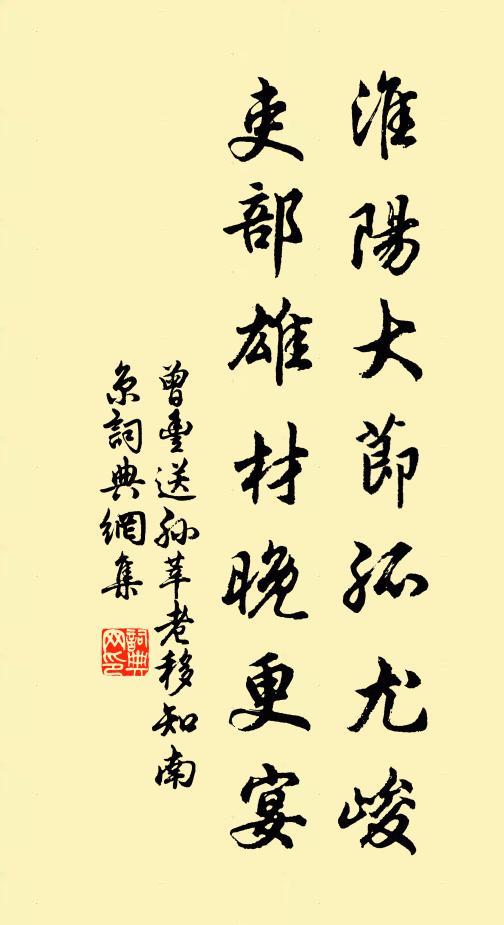 淮陽大節孤尤峻
吏部雄材晚更宴
曾豐送孫莘老移知南
京詞典網集
詞典网印